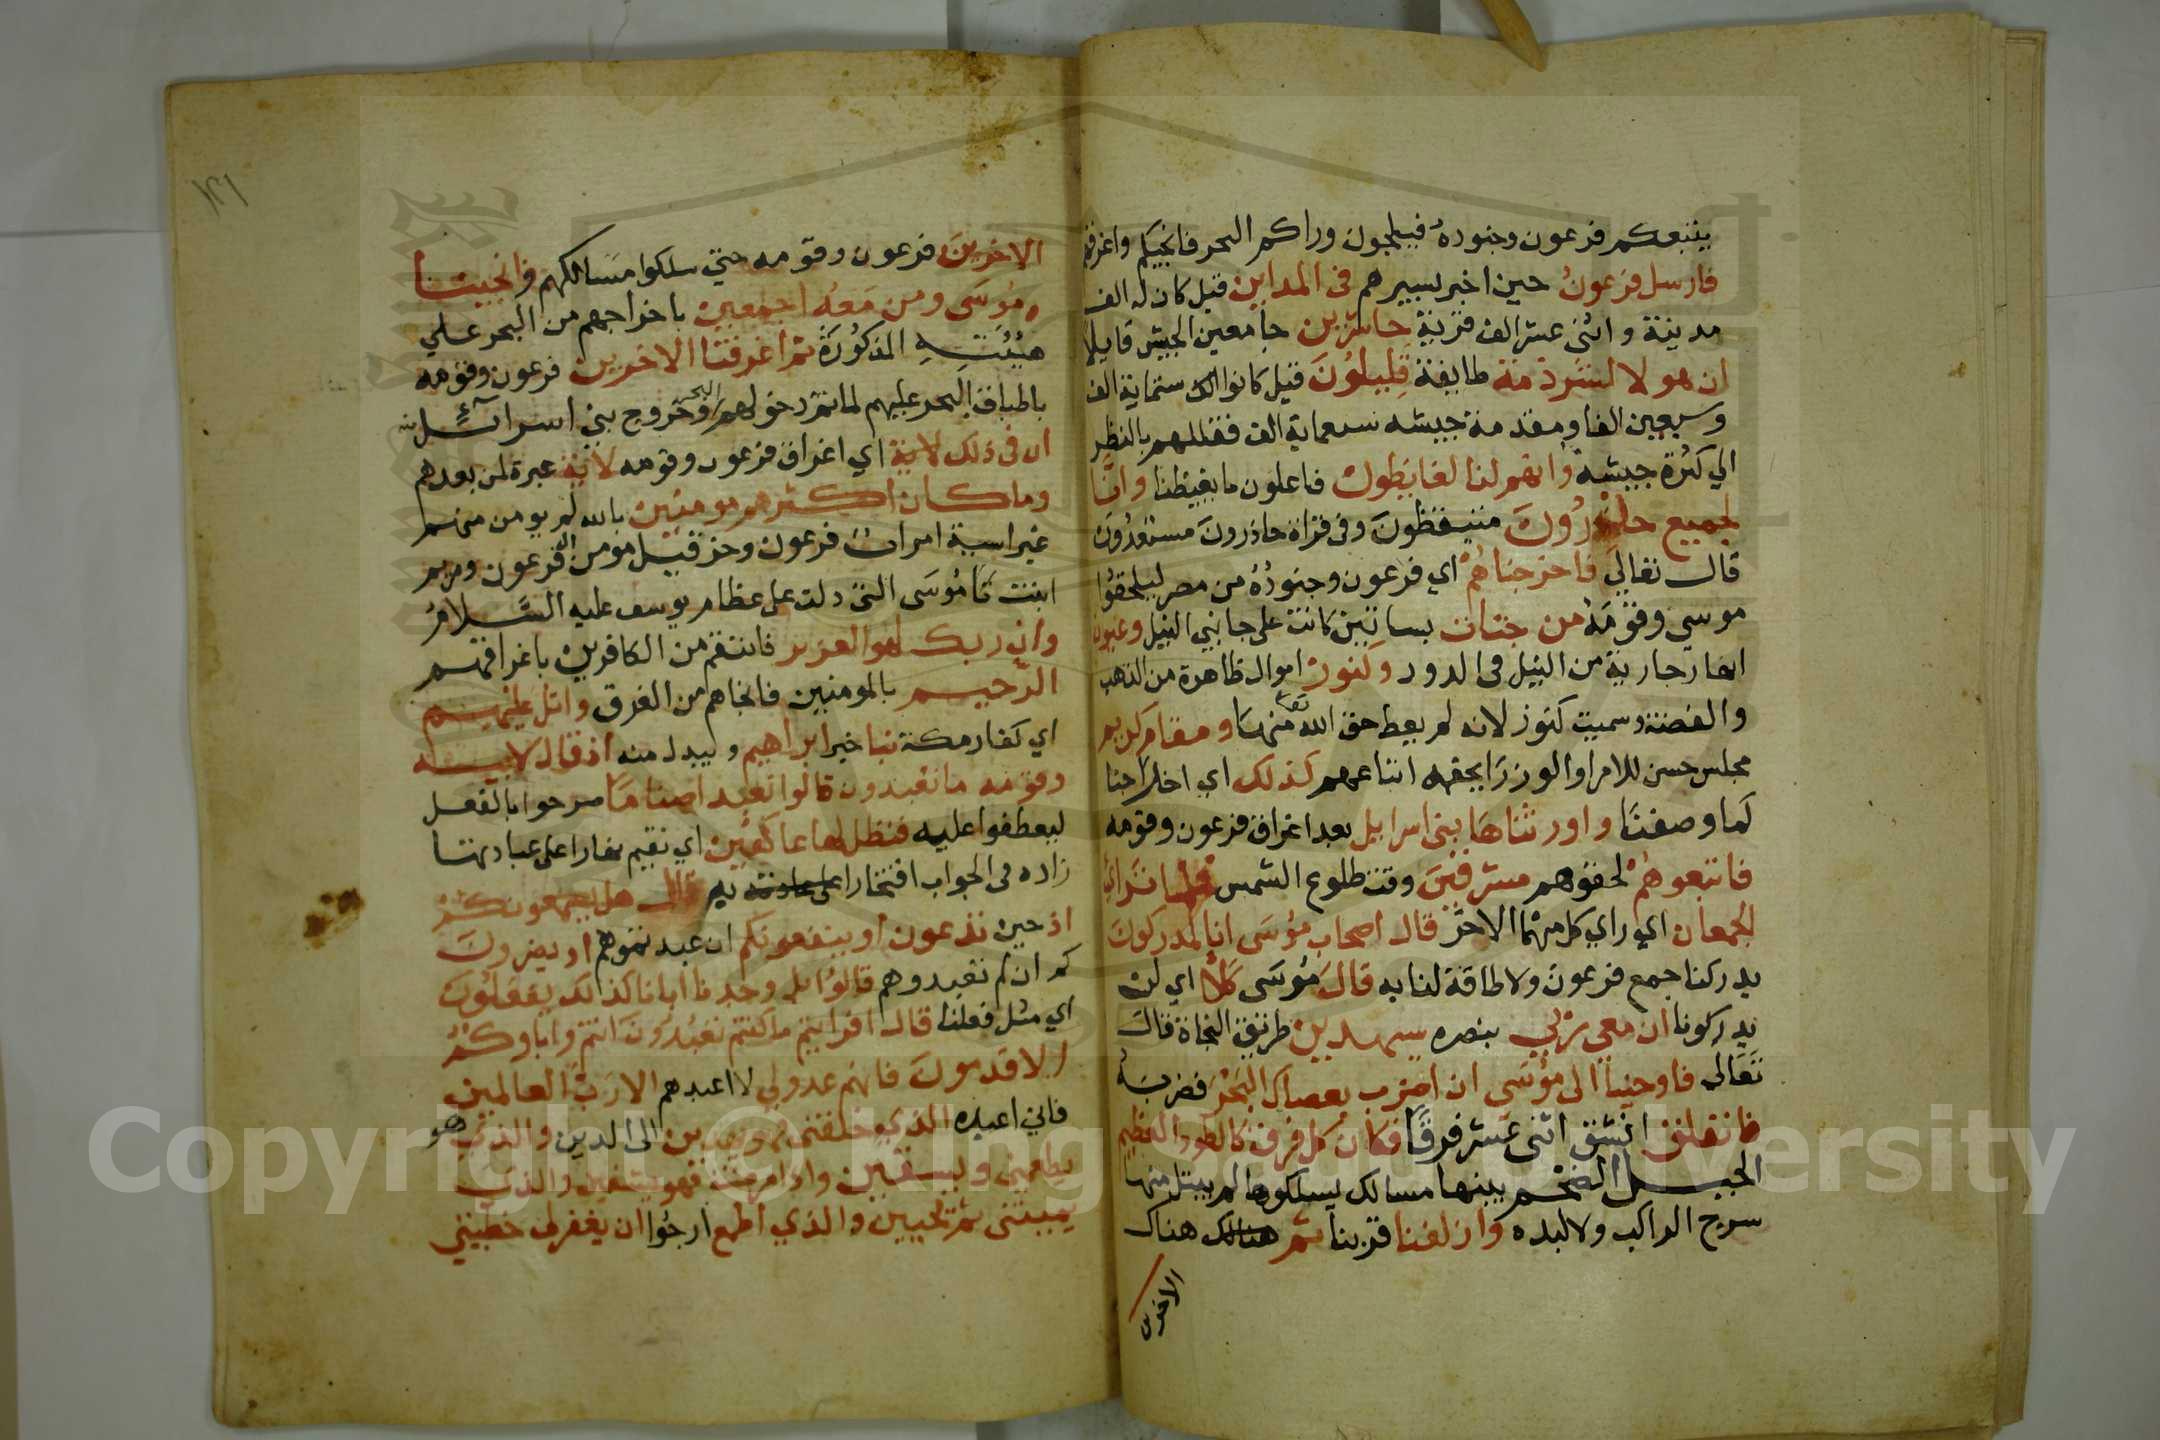 يتبعكم فرعون وجنوده فيلجون وراكم البحر فانجيكم واغرقهم
فارسل فرعون حين اخبر بسيرهم في المداين قيل كان له الف
مدينة واثنى عشر الف قرية حاشرين جامعين الجيش قايلا
ان هولا لشرذمة طايفة قليلون قيل كانوا الف ستماية الف
وسبعين الفا ومقدمة جيشه سبعماية الف فقللهم بالنظر
الي كثرة جيشه وانهم لنا لغايظون فاعلون ما يغيظنا وانا
لجميع حاذرون متيقظون وفي قراة حاذرون مستعدون
قال تعالي فاخرجناهم اي فرعون وجنوده من مصر ليلحقوا
موسى وقومه من جنات بساتين كانت على جانبي النيل وعيون
انهار جارية من النيل في الدور وكنوز اموال ظاهرة من الذهب
والفضة وسميت كنوز لانه لم يعط حق الله تعالى منها ومقام كريم
مجلس حسن للامرا والوزرا يحفه اتباعهم كذلك اي اخراجنا
كما وصفنا واورثناها بنى اسرايل بعد اغراق فرعون وقومه
فاتبعوهم لحقوهم مشرقين وقت طلوع الشمس فلما ترائ
الجمعان اي راي كل منهما الاخر قال اصحاب موسى انا لمدركون
يدركنا جمع فرعون ولا طاقة لنا به قال موسى كلا اي لن
يدركونا ان معي ربي بنصره سيهدين طريق النجاة قال
تعالى فاوحينا الى موسى ان اضرب بعصاك البحر فضربه
فانفلق انشق اثنى عشر فرقا فكان كل فرق كالطود العظيم
الجبل الضخم بينها مسالك يسلكوها لم يبتل منها
سرج الراكب ولا لبده وازلفنا قربنا ثم هنالك هناك
الاخرين
١٤٦
الاخرين فرعون وقومه حتى سلكوا مسالكهم وانجينا
موسى ومن معه اجمعين باخراجهم من البحر على
هيئته المذكورة ثم اغرقنا الاخرين فرعون وقومه
باطباق البحر عليهم لما تم دخولهم البحر وخروج بني اسرائل منه
ان في ذلك لاية اي اغراق فرعون وقومه لاية عبرة لمن بعدهم
وما كان اكثرهم مومنين بالله لم يومن منهم
غير اسية امرات فرعون وحزقيل مومن ال فرعون ومريم
ابنت ناموسى التي دلت على عظام يوسف عليه السلام
وان ربك لهو العزيز فانتقم من الكافرين باغراقهم
الرحيم بالمومنين فانجاهم من الغرق واتل عليهم
اي كفار مكة نبا خبر ابراهيم ويبدل منه اذ قال لابيه
وقومه ما تعبدون قالوا نعبد اصناما صرحوا بالفعل
ليعطفوا عليه فنظل لها عاكفين اي نقيم نهارا على عبادتها
زاده في الجواب افتخارا به قال هل يسمعونكم
اذ حين تدعون او ينفعونكم ان عبدتموهم او يضرون
كم ان لم تعبدوهم قالوا بل وجدنا ابانا كذلك يفعلون
اي مثل فعلنا قال افرايتم ما كنتم تعبدون انتم واباوكم
الاقدمون فانهم عدو لي لا اعبدهم الا رب العالمين
فاني اعبده الذي خلقني فهو يهدين الى الدين والذي هو
يطعمني ويسقين واذا مرضت فهو يشفين والذي
يميتنى ثم يحيين والذي اطمع ارجوا ان يغفر لي خطيئتي
Copyright © King Saud University